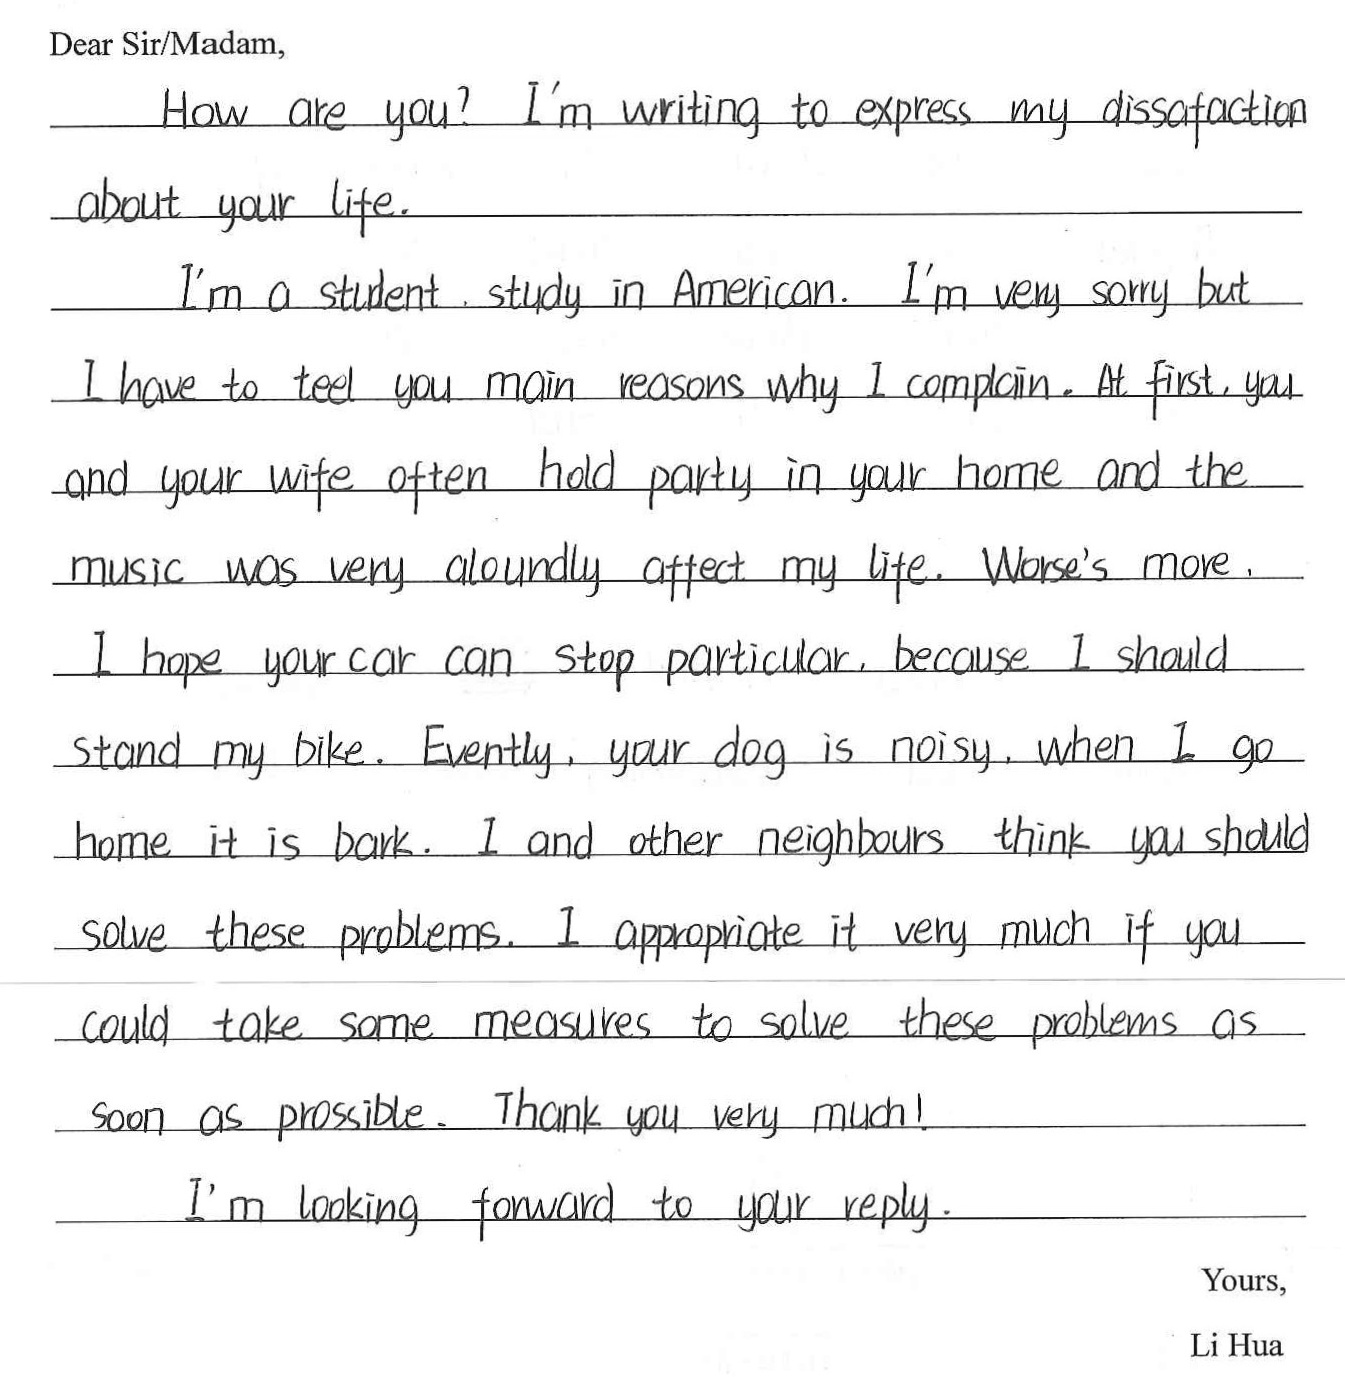 Dear Sir/Madam,
How are you? I'm writing to express my dissafaction
about your life.
I'm a student, study in American. I'm very sorry but
I have to teel you main reasons why I complain. At first, you
and your wife often hold party in your home and the
music was very aloundly affect my life. Worse's more,
I hope your car can stop particular, because I should
stand my bike. Evently, your dog is noisy, when I go
home it is bark. I and other neighbours think you should
solve these problems. I appropriate it very much if you
could take some measures to solve these problems as
soon as prossible. Thank you very much!
I'm looking forward to your reply.
Yours,
Li Hua